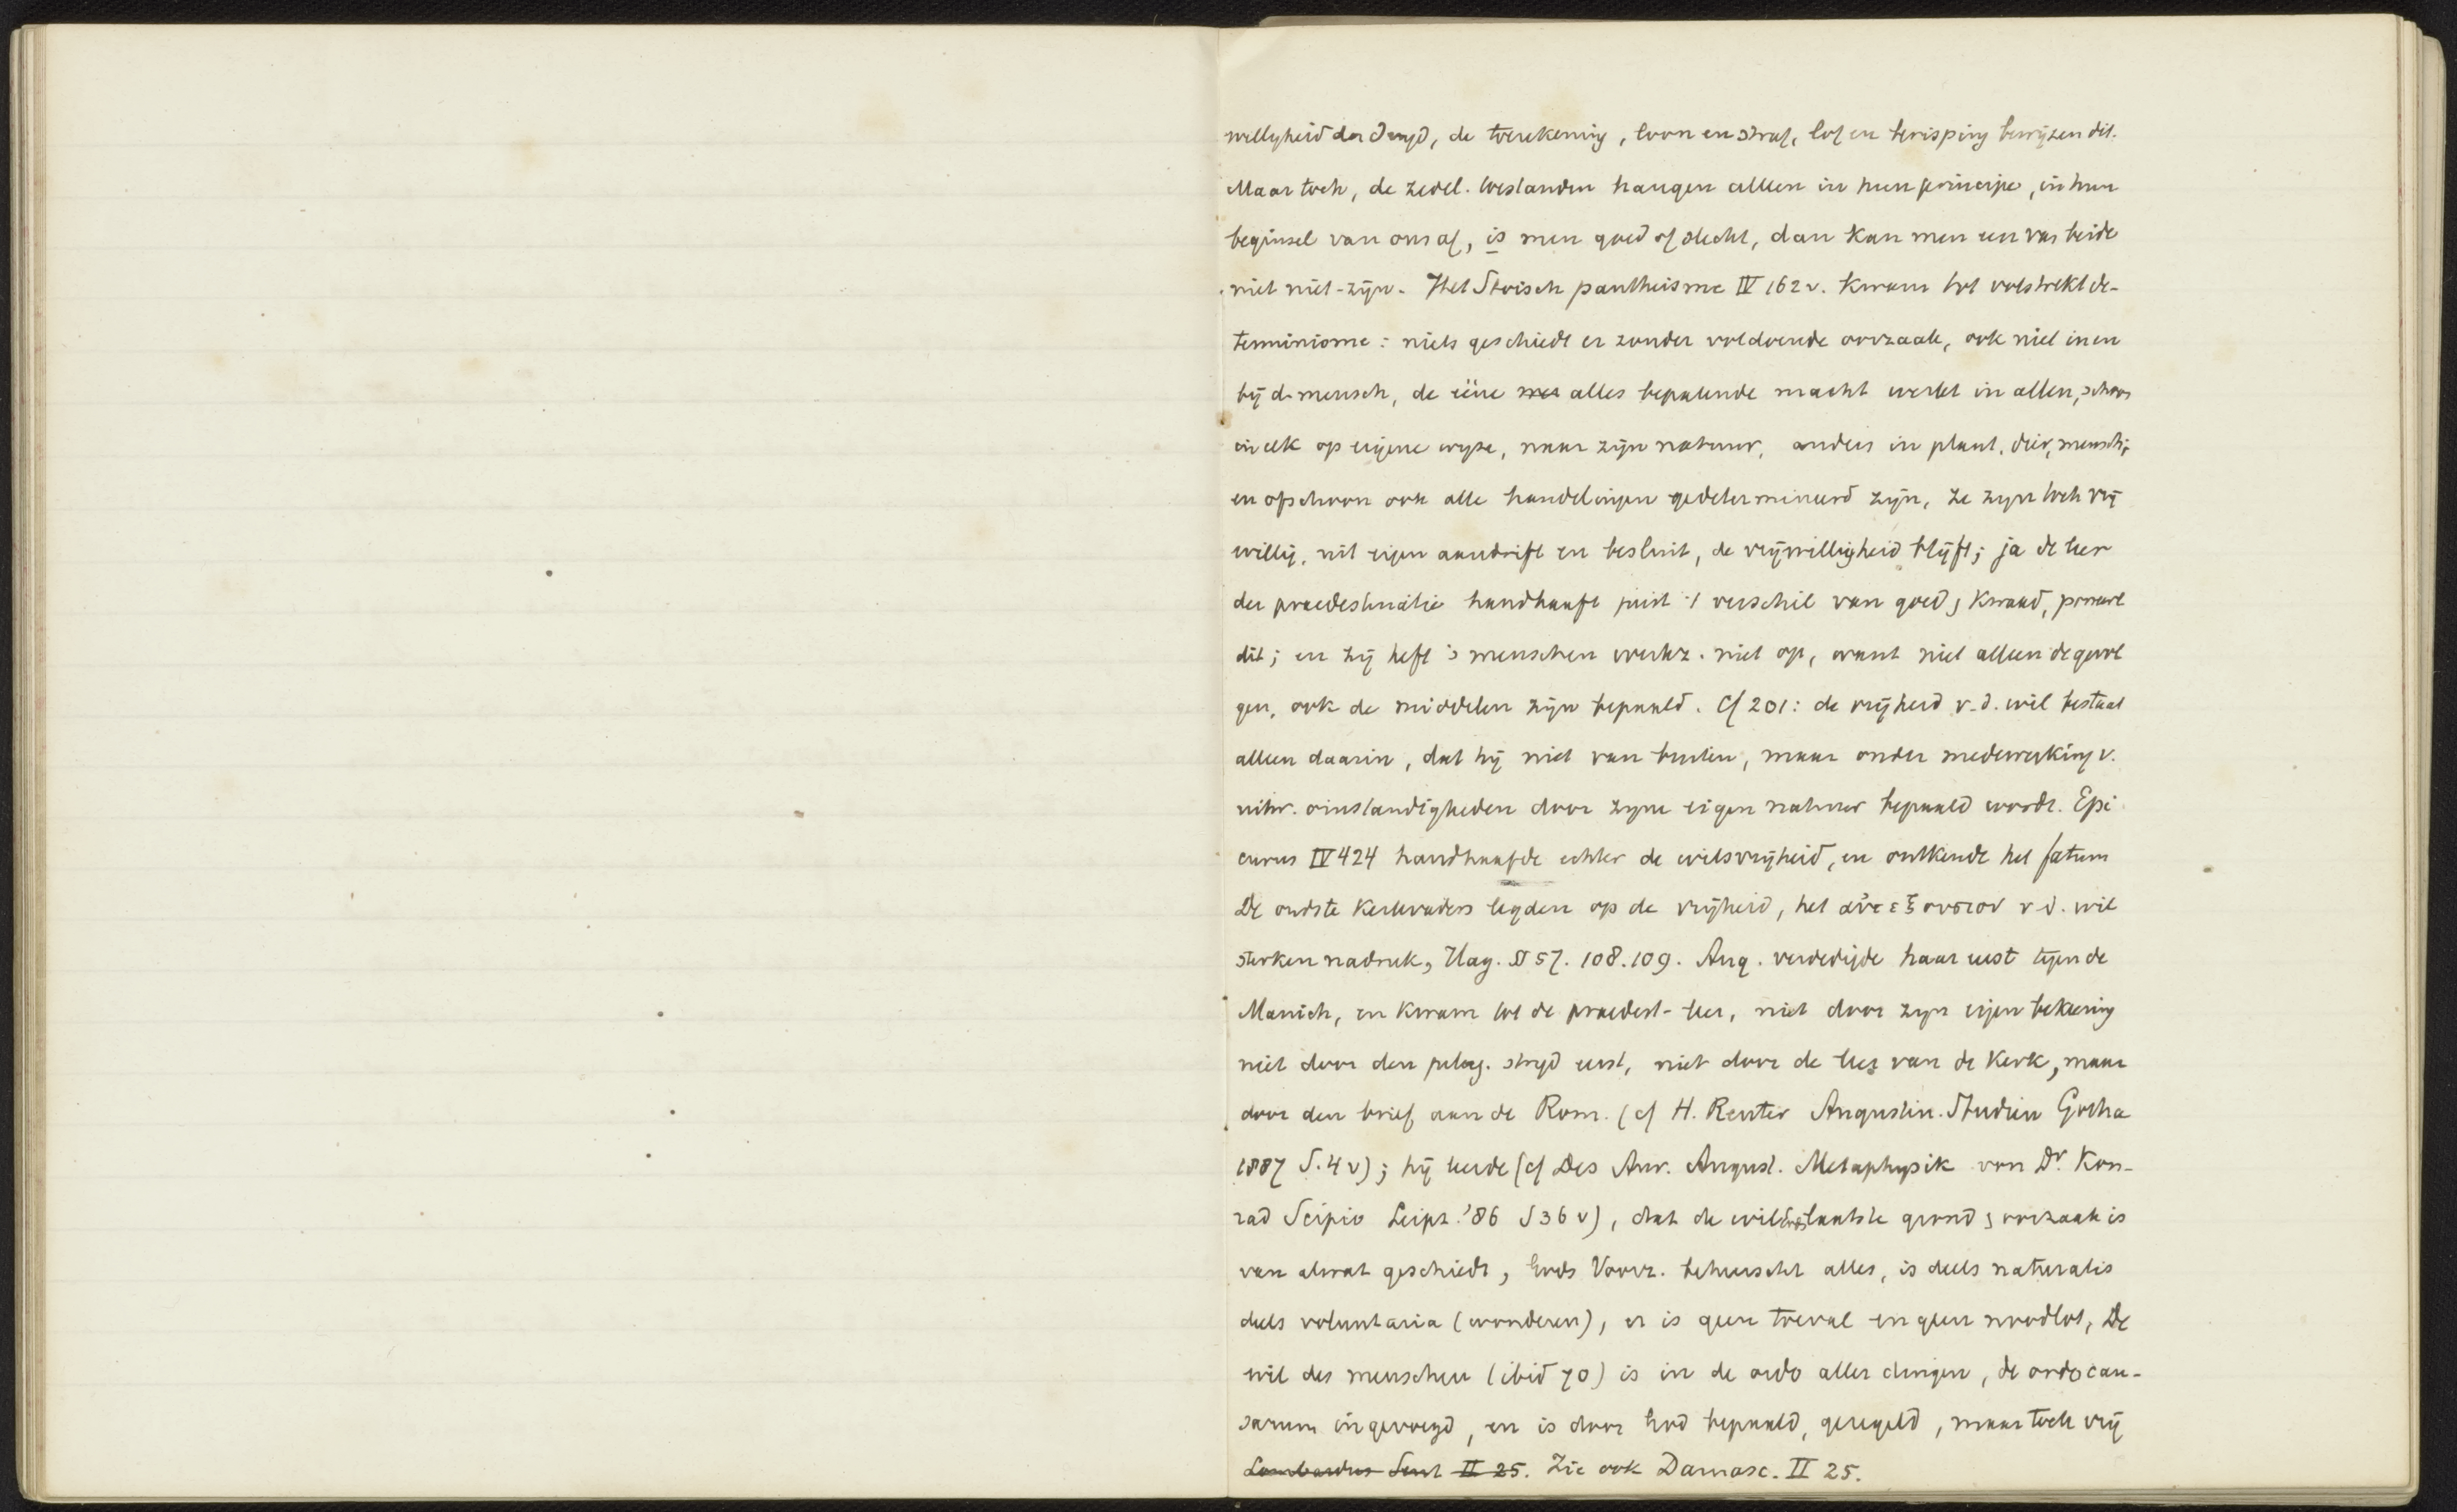 willigheid der deugd, de toerekening, loon en straf, lof en berisping bewijzen dit.
Maar toch, de zedel. toestanden hangen alleen in hun principe, in hun
beginsel van ons af, is men goed of slecht, dan kan men een van beide
niet niet-zijn. Het Stoisch pantheisme IV 162 v. kwam tot volstrekt de-
terminisme: niets geschiedt er zonder voldoende oorzaak, ook niet in en
bij d. mensch, de eéne alles bepalende macht werkt in allen, schoon
in elk op eigene wyze, naar zijn natuur, anders in plant, dier, mensch;
en ofschoon ook alle handelingen gedetermineerd zijn, ze zijn toch vrij
willig, uit eigen aandrift en besluit, de vrijwilligheid blijft; ja de leer
der praedestinatie handhaaft juist 't verschil van goed & kwaad, poneert
dit; en zij heft 's menschen werkz. niet op, want niet alleen de gevol
gen, ook de middelen zijn bepaald. Cf 201: de vrijheid v. d. wil bestaat
alleen daarin, dat hij niet van buiten, maar onder medewerking v.
uitw. omstandigheden door zijne eigen natuur bepaald wordt. Epi
curus IV 424 handhaafde echter de wilsvrijheid, en ontkende het fatum
De oudste kerkvaders legden op de vrijheid, het αὐτεξουσιον v d. wil
sterken nadruk, Hag. § 57. 108. 109. Aug. verdedigde haar eerst tegen de
Manich, en kwam tot de praedest-leer, niet door zijn eigen bekeering
niet door den pelag. strijd eerst, niet door de leer van de Kerk, maar
door den brief aan de Rom. (cf H. Reuter Augustin. Studien Gotha
1887 S. 4 v); hij leerde (cf Des Aur. August. Metaphysik von Dr. Kon-
rad Scipio Leipz. '86 S 36 v), dat de wil Gods laatste grond & oorzaak is
van alwat geschiedt, Gods Voorz. beheerscht alles, is deels naturalis
deels voluntaria (wonderen), er is geen toeval en geen noodlot, De
wil des menschen (ibid 70) is in de ordo aller dingen, de ordo cau-
sarum ingevoegd, en is door God bepaald, geregeld, maar toch vrij
Lombardus Sent II 25. Zie ook Damasc. II 25.